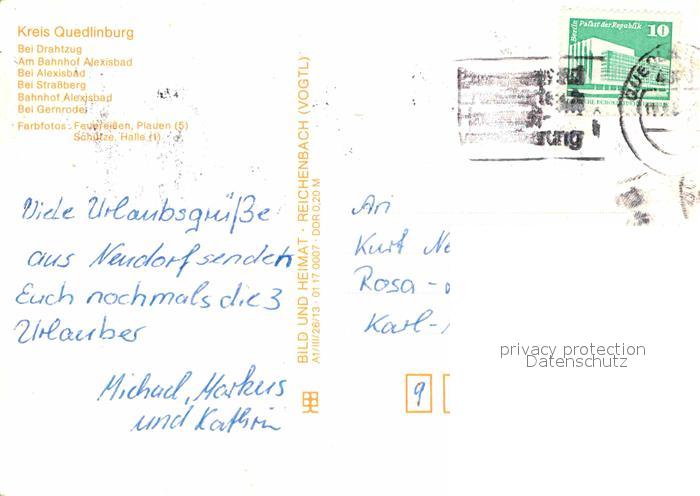 Kreis Quedlinburg
Bei Drahtzug
Am Bahnhof Alexisbad
Bei Alexisbad
Bei Straßberg
Bahnhof Alexisbad
Bei Gernrode
Farbfotos: Feuereißen, Plauen (5)
Schütze, Halle (1)
Viele Urlaubsgrüße
aus Neudorf senden
Euch nochmals die 3
Urlauber
Michael, Markus
und Kathrin
BILD UND HEIMAT · REICHENBACH (VOGTL)
A1/III/26/13 · 01 17 0007 · DDR 0,20 M
Berlin Palast der Republik
10
An
Kurt
Rosa -
Karl-
9
privacy protection
Datenschutz